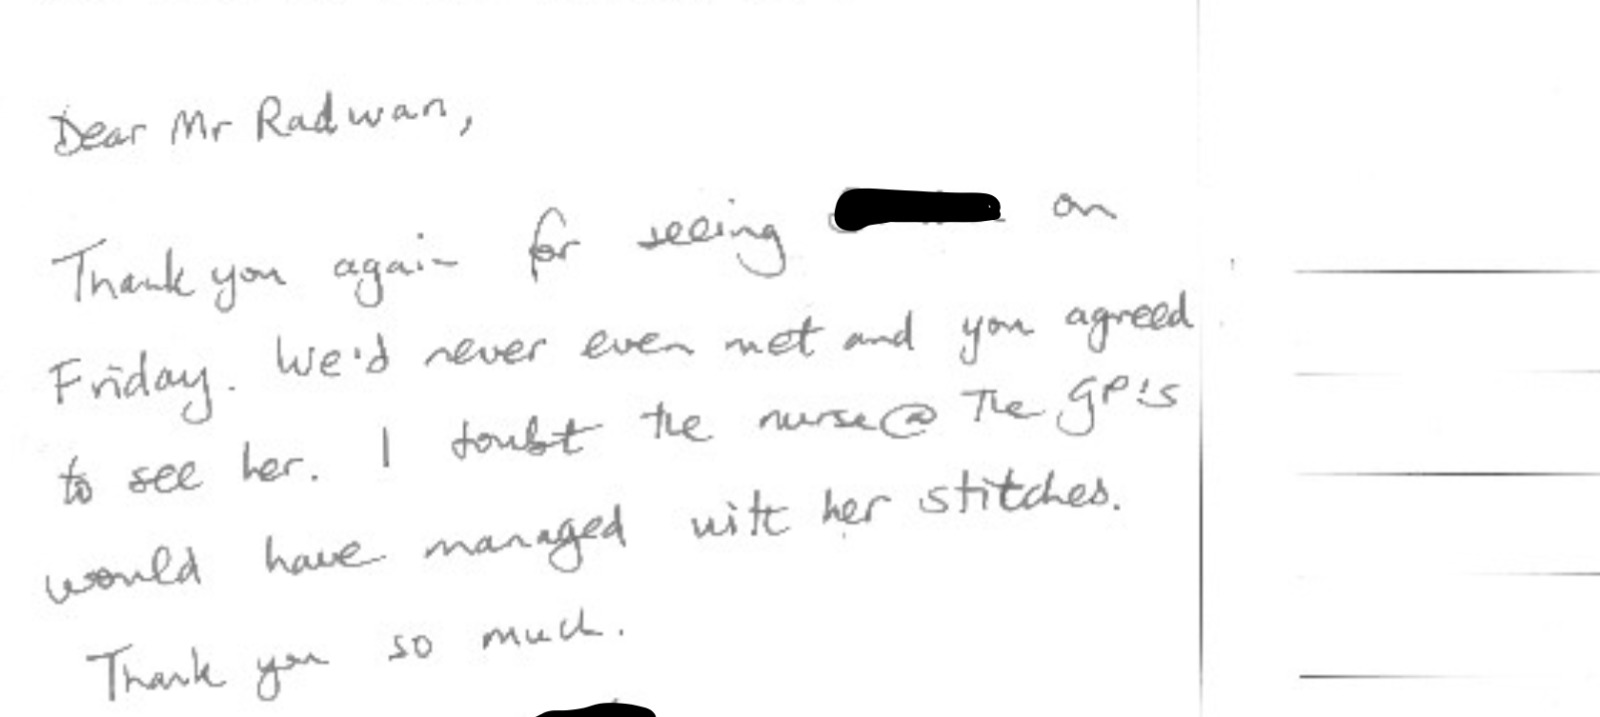 Dear Mr Radwan,
Thank you again for seeing on
Friday. We'd never even met and you agreed
to see her. I doubt the nurse @ The GP's
would have managed with her stitches.
Thank you so much.